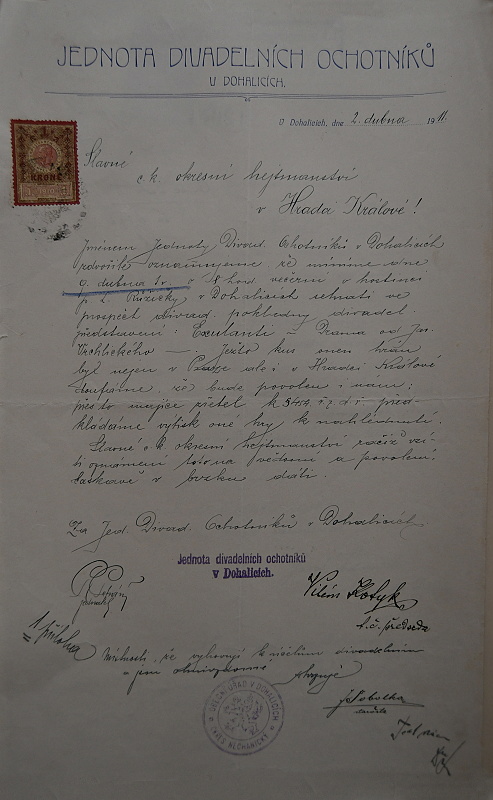 JEDNOTA DIVADELNÍCH OCHOTNÍKŮ
U DOHALICÍCH.
U Dohalicích, dne 2. dubna 1911.
KRONE
Slavné
c. k. okresní hejtmanství
v Hradci Králové!
Jménem Jednoty Divad. Ochotníků v Dohalicích
podvoluje oznamujeme, že míníme dne
9. dubna t.r. o 8 hod. večerní v hostinci
p. Růžičky v Dohalicích sehrati ve
prospěch divad. pokladny divadel.
představení: Exulanti – Drama od Jar.
Vrchlického –. Ježto kus onen hrán
byl nejen v Praze ale i v Hradci Králové
doufáme, že bude povolen i nám;
přesto majíce zřetel k před-
kládáme výtisk oné hry k nahlédnutí.
Slavné c. k. okresní hejtmanství račiž vzí-
ti oznámení toto na vědomí a povolení
laskavě v brzku dáti.
Za Jed. Divad. Ochotníků v Dohalicích
Jednota divadelních ochotníků
v Dohalicích.
Vilém Kotyk
t. č. předseda
1 příloha
Místnosti, že vyhovují k účelům divadelním
stvrzuje
J. Sobotka
OBECNÍ ÚŘAD V DOHALICÍCH